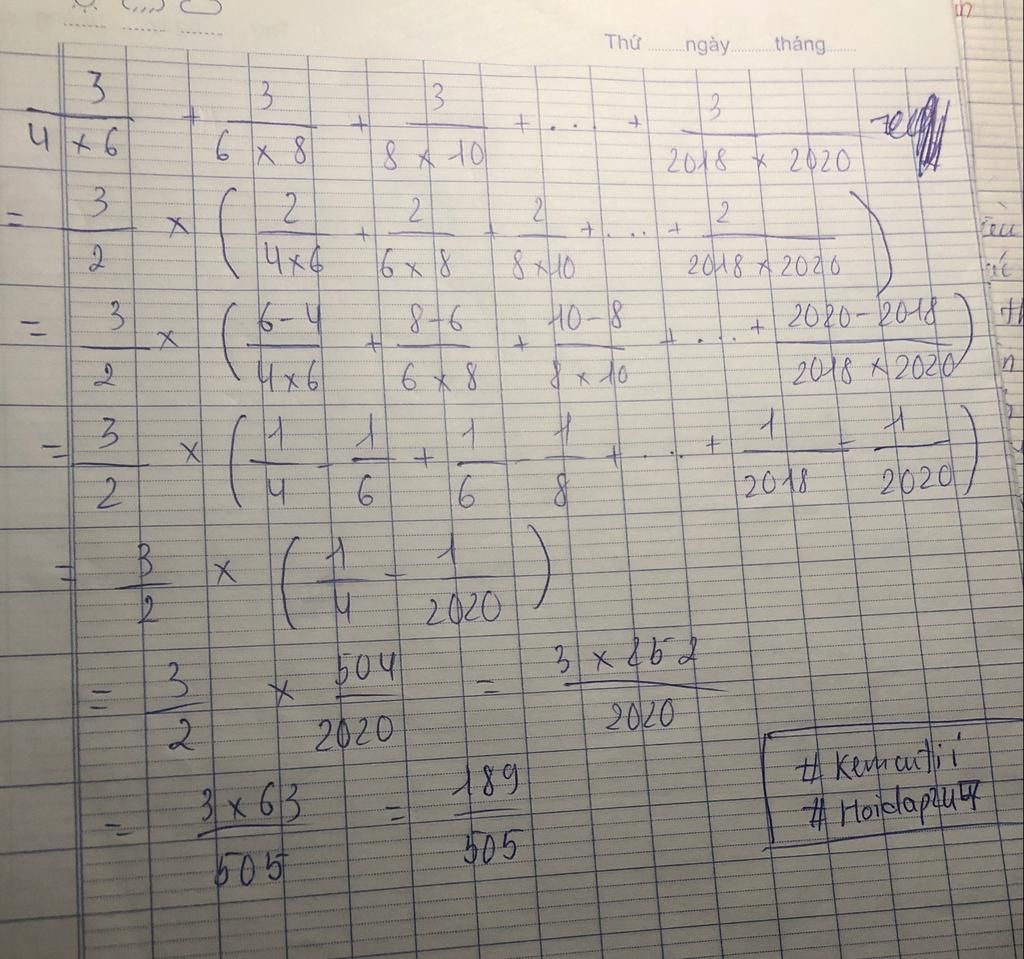 Thứ ........ ngày ........ tháng ........
3/(4 × 6) + 3/(6 × 8) + 3/(8 × 10) + ... + 3/(2018 × 2020)
= 3/2 × ( 2/(4×6) + 2/(6×8) + 2/(8×10) + .... + 2/(2018 × 2020) )
= 3/2 × ( (6-4)/(4×6) + (8-6)/(6×8) + (10-8)/(8×10) + ... + (2020-2018)/(2018×2020) )
= 3/2 × ( 1/4 - 1/6 + 1/6 - 1/8 + ... + 1/2018 - 1/2020 )
= 3/2 × ( 1/4 - 1/2020 )
= 3/2 × 504/2020 = (3 × 252)/2020
= (3 × 63)/505 = 189/505
# Kemcutii
# Hoidap247